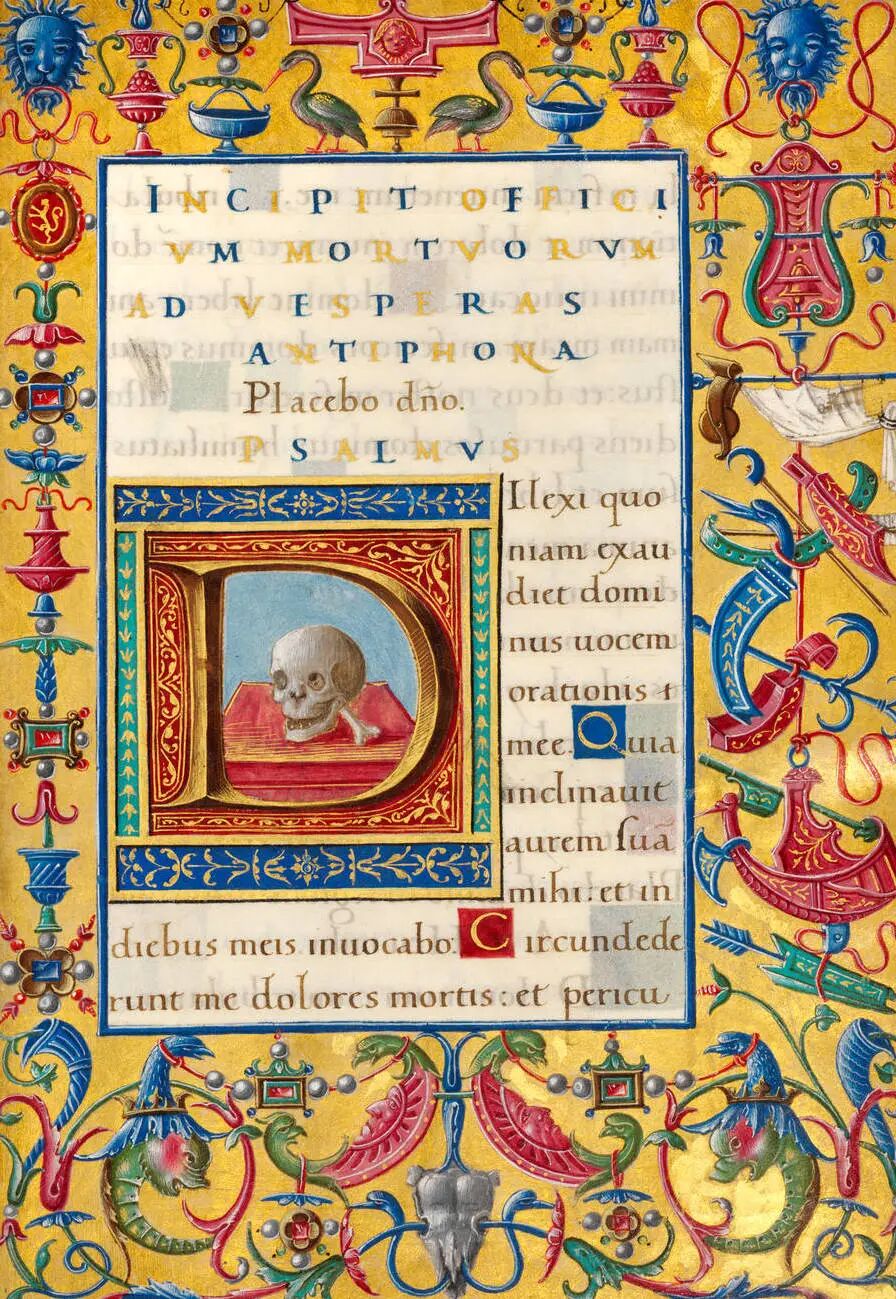 INCIPIT OFFICI
VM MORTVORVM
AD VESPERAS
ANTIPHONA
Placebo dño.
PSALMVS
DIlexi quo
niam exau
diet domi
nus uocem
orationis
mee. Quia
inclinauit
aurem ſuā
mihi: et in
diebus meis inuocabo: Circundede
runt me dolores mortis: et pericu